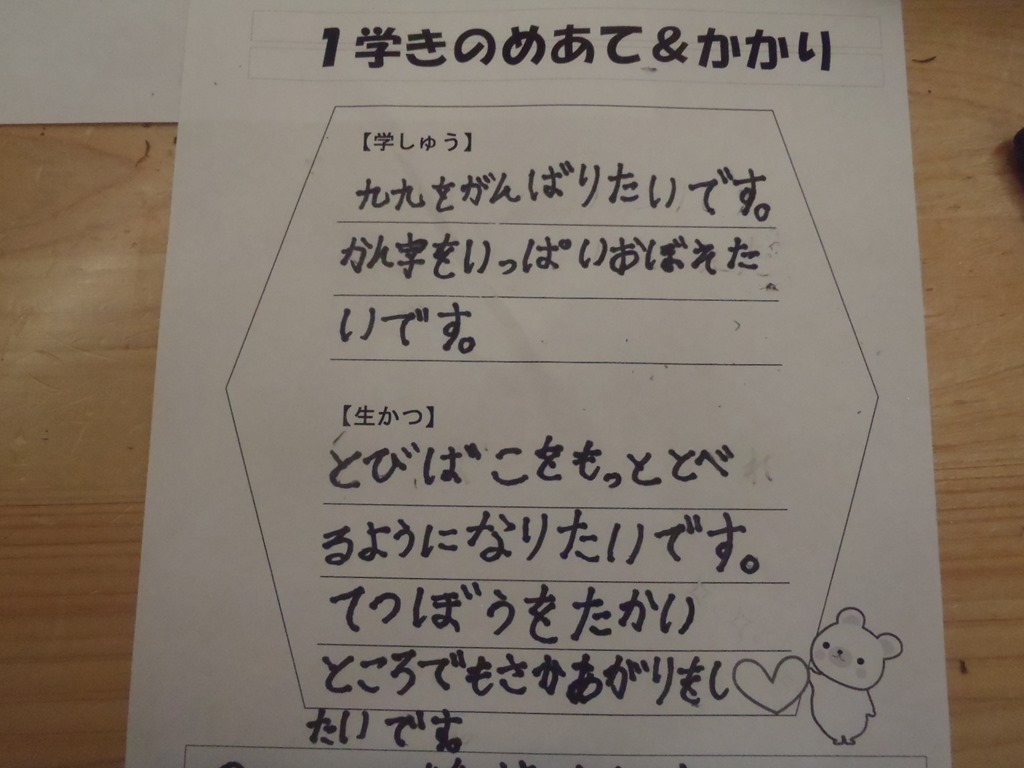 1学きのめあて&かかり
【学しゅう】
九九をがんばりたいです。
かん字をいっぱいおぼそた
いです。
【生かつ】
とびばこをもっととべ
るようになりたいです。
てつぼうをたかい
ところでもさかあがりをし
たいです。